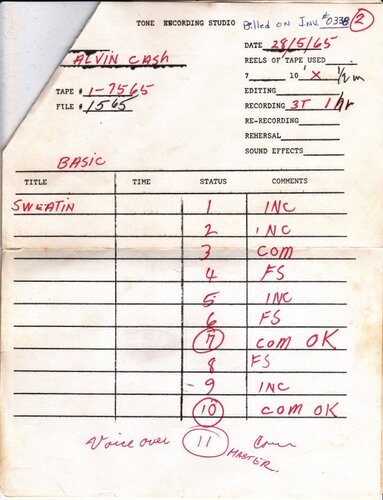 TONE ENCORDING STUDIO Billed on Inv. #0338 (2)
DATE 28/5/65
ALVIN CASH
REELS OF TAPE USED
7 10 X 1/2 m
TAPE # 1-7565
EDITING
FILE # 1565
RECORDING 3T 1 Hr
RE-RECORDING
REHERSAL
SOUND EFFECTS
BASIC
TITLE TIME STATUS COMMENTS
SWEATIN 1 INC
2 INC
3 COM
4 FS
5 INC
6 FS
7 COM OK
8 FS
9 INC
10 COM OK
Voice over 11 Com
MASTER.